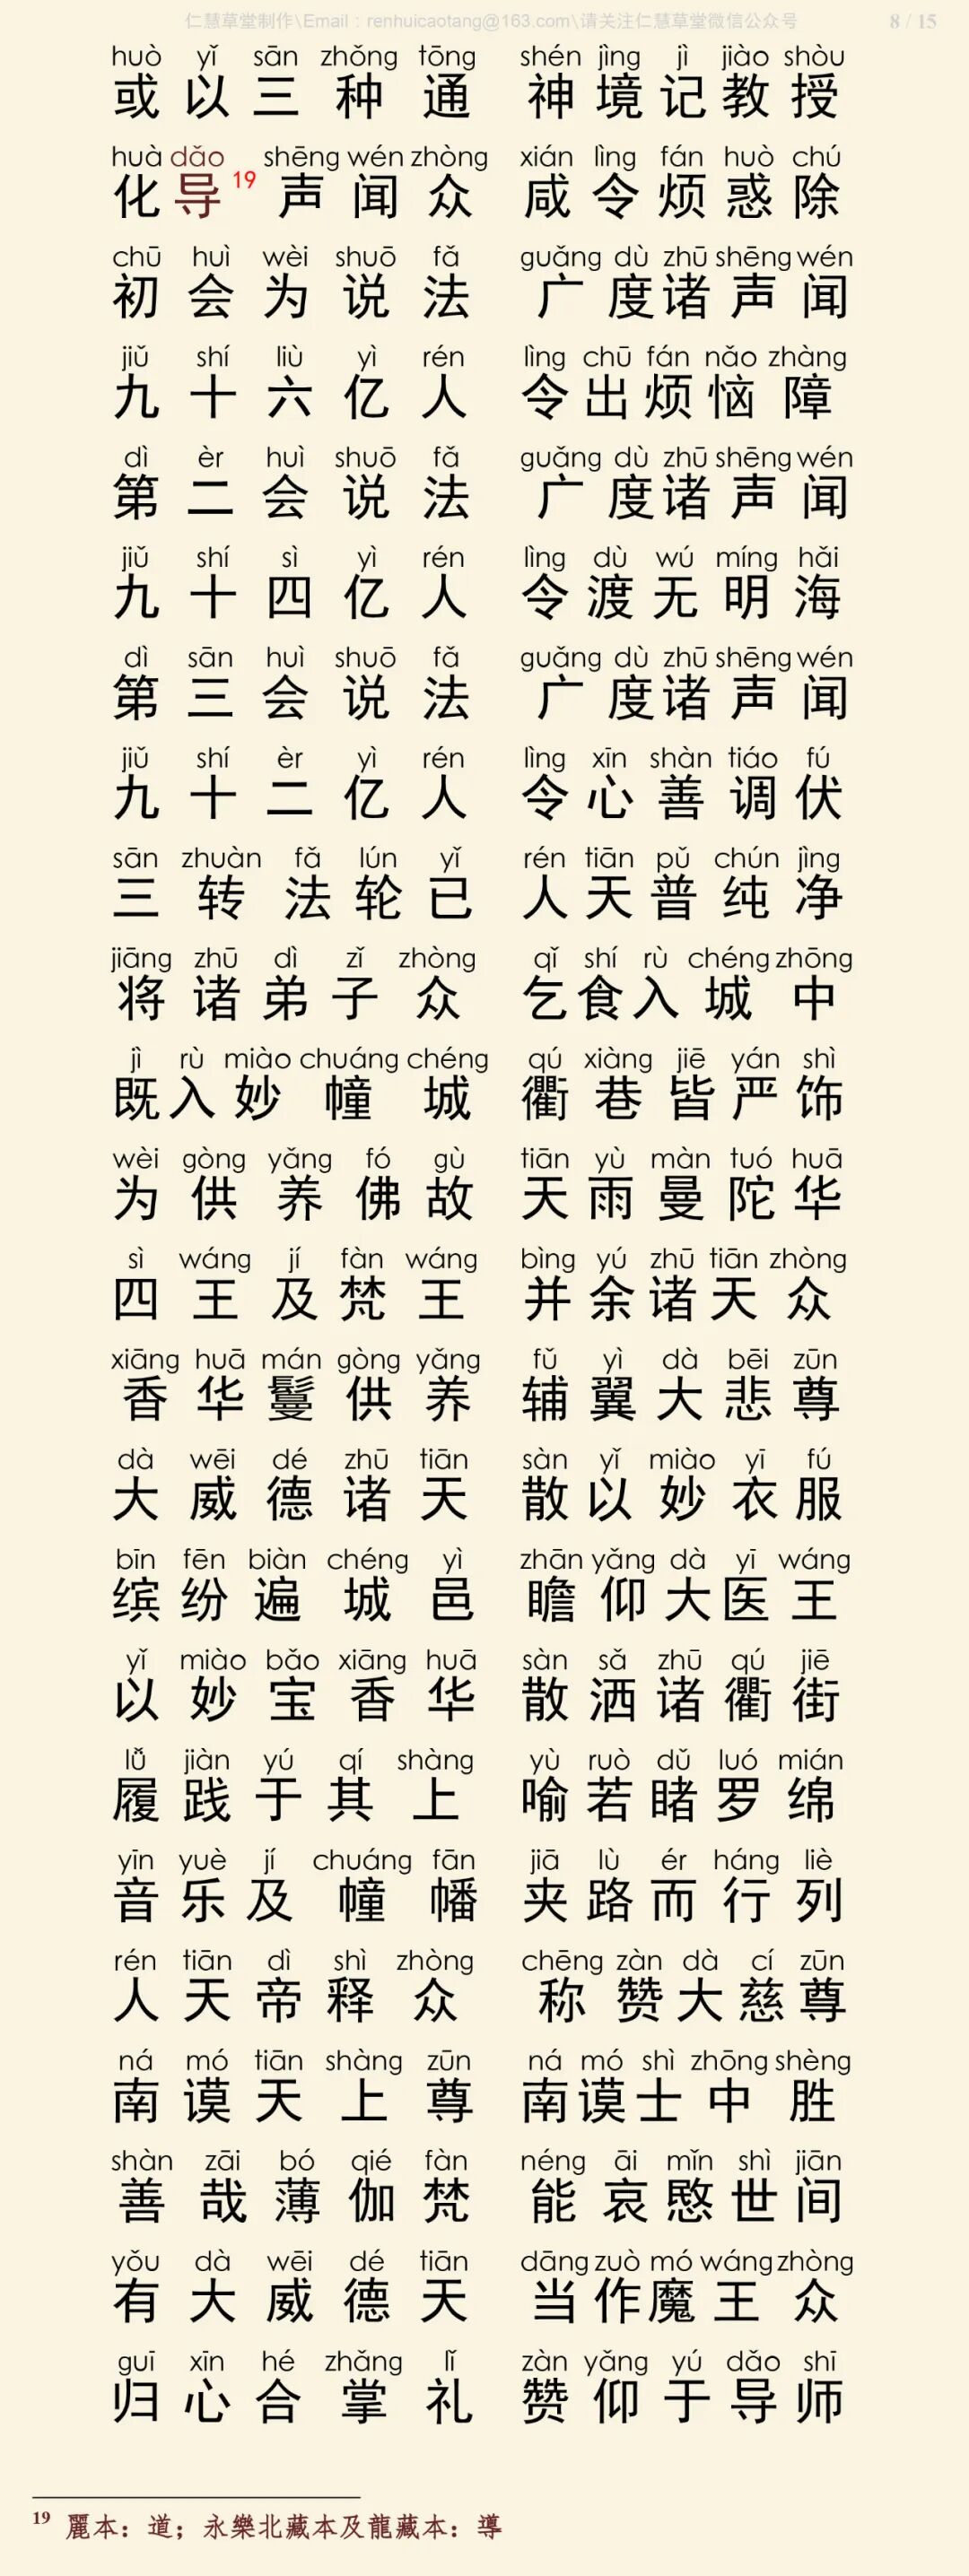 仁慧草堂制作\Email：renhuicaotang@163.com\请关注仁慧草堂微信公众号 8 / 15
huò yǐ sān zhǒng tōng shén jìng jì jiào shòu
或以三种通 神境记教授
huà dǎo shēng wén zhòng xián lìng fán huò chú
化导19声闻众 咸令烦惑除
chū huì wèi shuō fǎ guǎng dù zhū shēng wén
初会为说法 广度诸声闻
jiǔ shí liù yì rén lìng chū fán nǎo zhàng
九十六亿人 令出烦恼障
dì èr huì shuō fǎ guǎng dù zhū shēng wén
第二会说法 广度诸声闻
jiǔ shí sì yì rén lìng dù wú míng hǎi
九十四亿人 令渡无明海
dì sān huì shuō fǎ guǎng dù zhū shēng wén
第三会说法 广度诸声闻
jiǔ shí èr yì rén lìng xīn shàn tiáo fú
九十二亿人 令心善调伏
sān zhuàn fǎ lún yǐ rén tiān pǔ chún jìng
三转法轮已 人天普纯净
jiāng zhū dì zǐ zhòng qǐ shí rù chéng zhōng
将诸弟子众 乞食入城中
jì rù miào chuáng chéng qú xiàng jiē yán shì
既入妙幢城 衢巷皆严饰
wèi gòng yǎng fó gù tiān yù màn tuó huā
为供养佛故 天雨曼陀华
sì wáng jí fàn wáng bìng yú zhū tiān zhòng
四王及梵王 并余诸天众
xiāng huā mán gòng yǎng fǔ yì dà bēi zūn
香华鬘供养 辅翼大悲尊
dà wēi dé zhū tiān sàn yǐ miào yī fú
大威德诸天 散以妙衣服
bīn fēn biàn chéng yì zhān yǎng dà yī wáng
缤纷遍城邑 瞻仰大医王
yǐ miào bǎo xiāng huā sàn sǎ zhū qú jiē
以妙宝香华 散洒诸衢街
lǚ jiàn yú qí shàng yù ruò dǔ luó mián
履践于其上 喻若睹罗绵
yīn yuè jí chuáng fān jiā lù ér háng liè
音乐及幢幡 夹路而行列
rén tiān dì shì zhòng chēng zàn dà cí zūn
人天帝释众 称赞大慈尊
ná mó tiān shàng zūn ná mó shì zhōng shèng
南谟天上尊 南谟士中胜
shàn zāi bó qié fàn néng āi mǐn shì jiān
善哉薄伽梵 能哀愍世间
yǒu dà wēi dé tiān dāng zuò mó wáng zhòng
有大威德天 当作魔王众
guī xīn hé zhǎng lǐ zàn yǎng yú dǎo shī
归心合掌礼 赞仰于导师
19 麗本：道；永樂北藏本及龍藏本：導